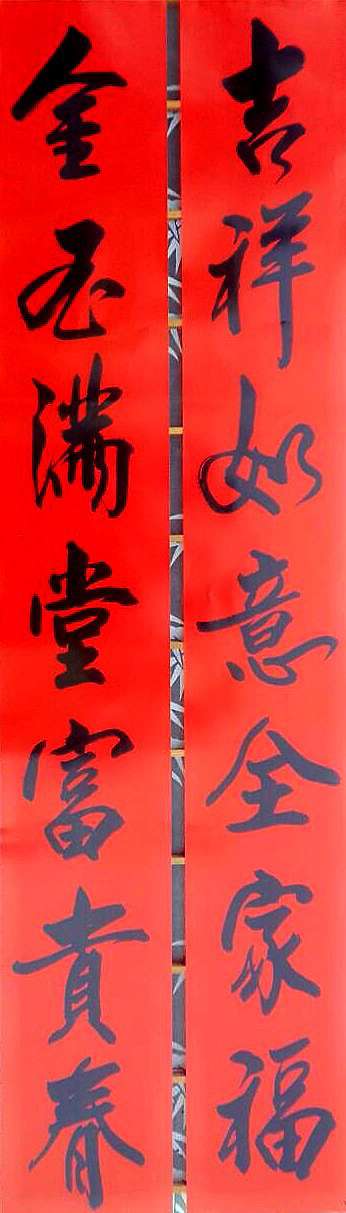 吉祥如意全家福
金玉满堂富贵春